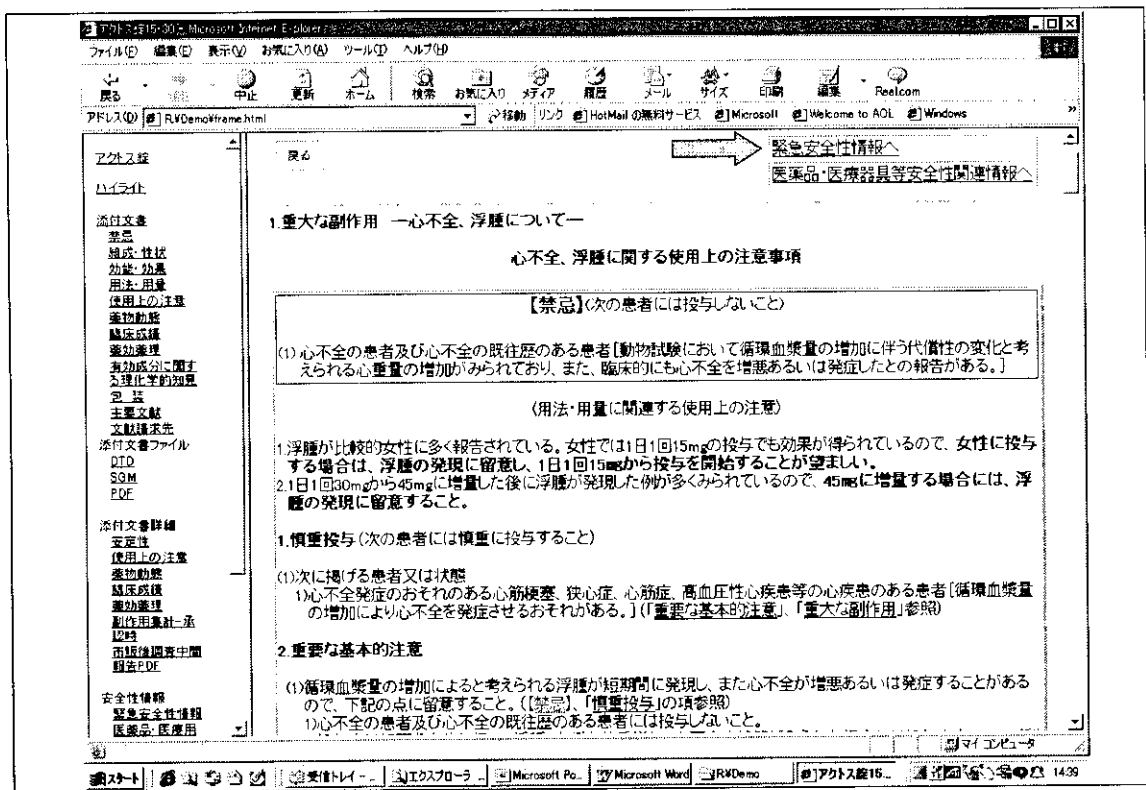 アクトス錠15・30の Microsoft Internet Explorer
ファイル(F) 編集(E) 表示(V) お気に入り(A) ツール(T) ヘルプ(H)
戻る 中止 更新 ホーム 検索 お気に入り メディア 履歴 メール サイズ 印刷 編集 Real.com
アドレス(D) R:¥Demo¥frame.html 移動 リンク HotMail の無料サービス Microsoft Welcome to AOL Windows »
アクトス錠
ハイライト
添付文書
禁忌
組成・性状
効能・効果
用法・用量
使用上の注意
薬物動態
臨床成績
薬効薬理
有効成分に関す
る理化学的知見
包 装
主要文献
文献請求先
添付文書ファイル
DTD
SGM
PDF
添付文書詳細
安定性
使用上の注意
薬物動態
臨床成績
薬効薬理
副作用集計-承
認時
市販後調査中間
報告PDF
安全性情報
緊急安全性情報
医薬品・医療用
戻る
緊急安全性情報へ
医薬品・医療器具等安全性関連情報へ
1.重大な副作用 ―心不全、浮腫について―
心不全、浮腫に関する使用上の注意事項
【禁忌】(次の患者には投与しないこと)
(1)心不全の患者及び心不全の既往歴のある患者[動物試験において循環血漿量の増加に伴う代償性の変化と考
えられる心重量の増加がみられており、また、臨床的にも心不全を増悪あるいは発症したとの報告がある。]
(用法・用量に関連する使用上の注意)
1.浮腫が比較的女性に多く報告されている。女性では1日1回15mgの投与でも効果が得られているので、女性に投与
する場合は、浮腫の発現に留意し、1日1回15mgから投与を開始することが望ましい。
2.1日1回30mgから45mgに増量した後に浮腫が発現した例が多くみられているので、45mgに増量する場合には、浮
腫の発現に留意すること。
1.慎重投与(次の患者には慎重に投与すること)
(1)次に掲げる患者又は状態
1)心不全発症のおそれのある心筋梗塞、狭心症、心筋症、高血圧性心疾患等の心疾患のある患者[循環血漿量
の増加により心不全を発症させるおそれがある。](「重要な基本的注意」、「重大な副作用」参照)
2.重要な基本的注意
(1)循環血漿量の増加によると考えられる浮腫が短期間に発現し、また心不全が増悪あるいは発症することがある
ので、下記の点に留意すること。(【禁忌】、「慎重投与」の項参照)
1)心不全の患者及び心不全の既往歴のある患者には投与しないこと。
マイ コンピュータ
スタート 受信トレイ - .. エクスプローラ .. Microsoft Po.. Microsoft Word R:¥Demo アクトス錠15... 14:39